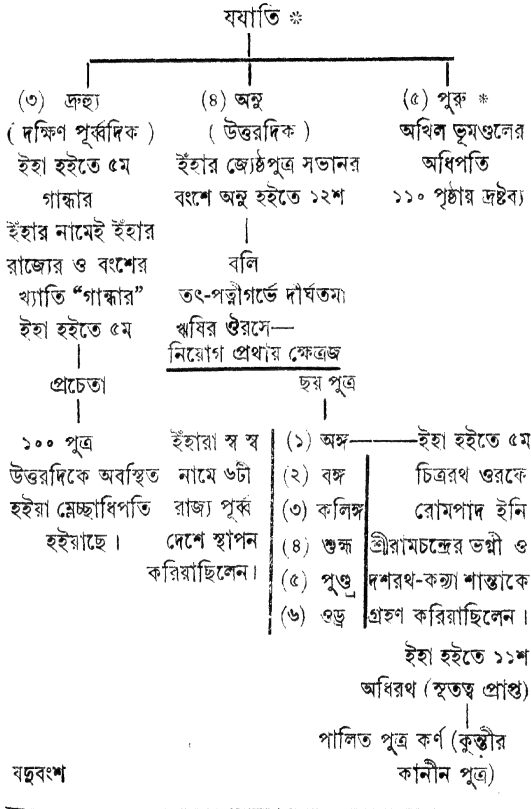 যযাতি *
(৩) দ্রুহ্যু
( দক্ষিণ পূর্ব্বদিক )
ইহা হইতে ৫ম
গান্ধার
ইঁহার নামেই ইঁহার
রাজ্যের ও বংশের
খ্যাতি “গান্ধার”
ইহা হইতে ৫ম
প্রচেতা
১০০ পুত্র
উত্তরদিকে অবস্থিত
হইয়া ম্লেচ্ছাধিপতি
হইয়াছে ।
(৪) অনু
( উত্তরদিক )
ইঁহার জ্যেষ্ঠপুত্র সভানর
বংশে অনু হইতে ১২শ
বলি
তৎ-পত্নীগর্ভে দীর্ঘতমা
ঋষির ঔরসে—
নিয়োগ প্রথায় ক্ষেত্রজ
ছয় পুত্র
ইঁহারা স্ব স্ব
নামে ৬টী
রাজ্য পূর্ব্ব
দেশে স্থাপন
করিয়াছিলেন।
(১) অঙ্গ
(২) বঙ্গ
(৩) কলিঙ্গ
(৪) শুহ্ম
(৫) পুণ্ড্র
(৬) ওড্র
ইহা হইতে ৫ম
চিত্ররথ ওরফে
রোমপাদ ইনি
শ্রীরামচন্দ্রের ভগ্নী ও
দশরথ-কন্যা শান্তাকে
গ্রহণ করিয়াছিলেন ।
ইহা হইতে ১১শ
অধিরথ (সূতত্ব প্রাপ্ত)
পালিত পুত্র কর্ণ (কুন্তীর
কানীন পুত্র)
(৫) পুরু *
অখিল ভূমণ্ডলের
অধিপতি
১১০ পৃষ্ঠায় দ্রষ্টব্য
যদুবংশ